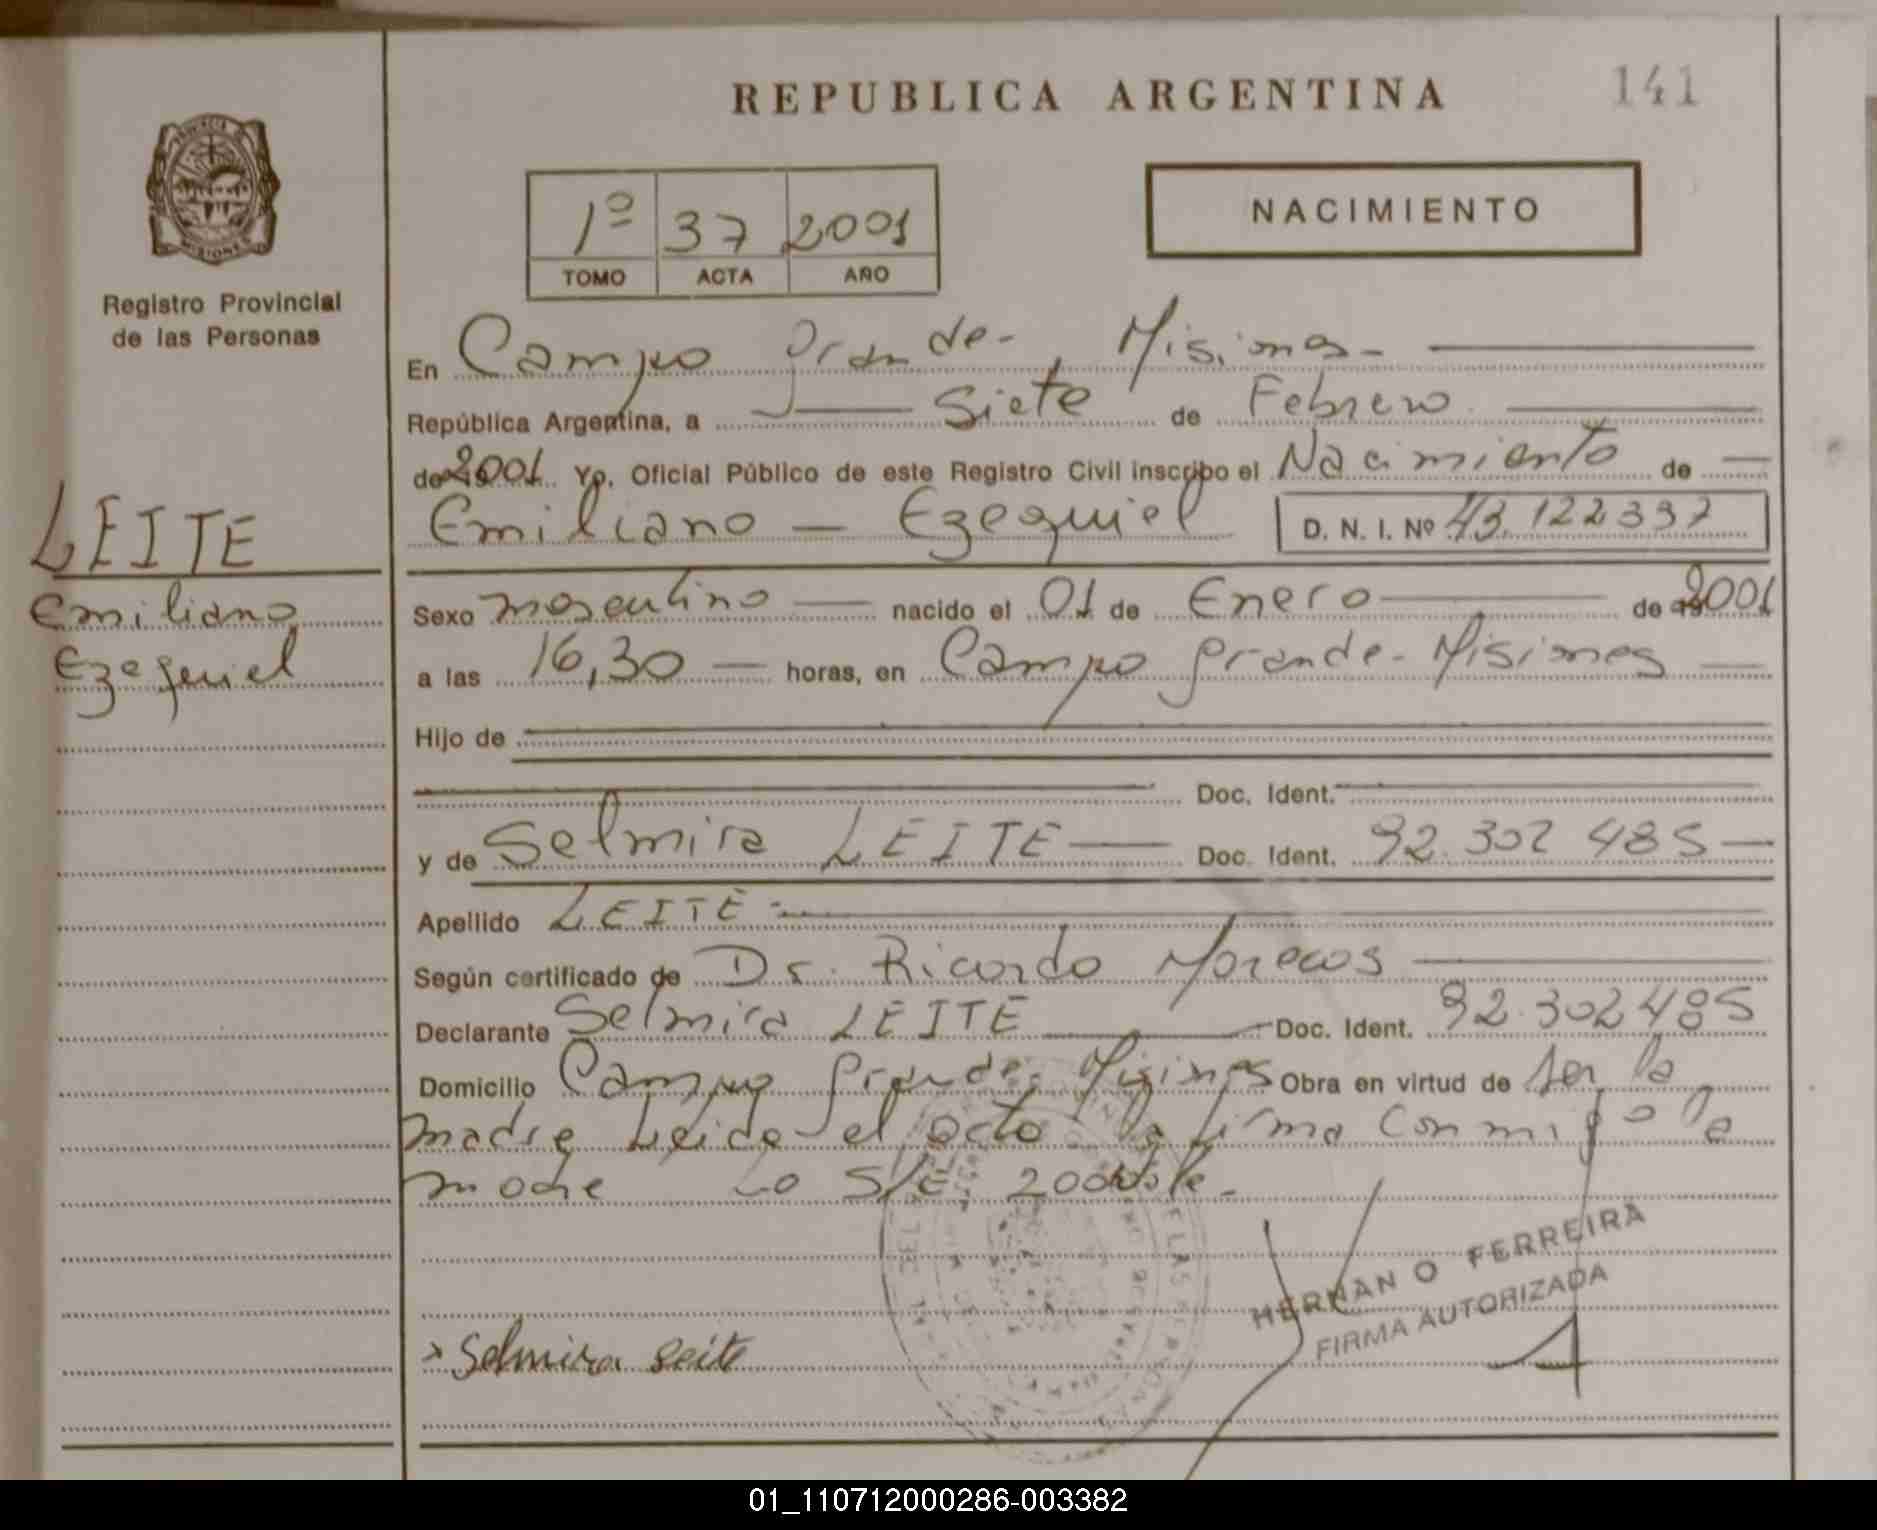 REPUBLICA ARGENTINA
141
1º 37 2001
TOMO ACTA AÑO
NACIMIENTO
Registro Provincial
de las Personas
En Campo Grande - Misiones -
República Argentina, a Siete de Febrero
de 2001 Yo, Oficial Público de este Registro Civil inscribo el Nacimiento de
Emiliano - Ezequiel D. N. I. Nº 43.122337
LEITE
Emiliano
Ezequiel
Sexo masculino nacido el 01 de Enero de 2001
a las 16,30 horas, en Campo Grande - Misiones
Hijo de
Doc. Ident.
y de Selmira LEITE Doc. Ident. 92.302 485
Apellido LEITE -
Según certificado de Dr. Ricardo
Declarante Selmira LEITE Doc. Ident. 92.302485
Domicilio Campo Grande - Misiones Obra en virtud de ser la
madre Leida el acto la firma conmigo la
madre S/E. 2001
HERNAN O FERREIRA
FIRMA AUTORIZADA
Selmira Leite
01_110712000286-003382